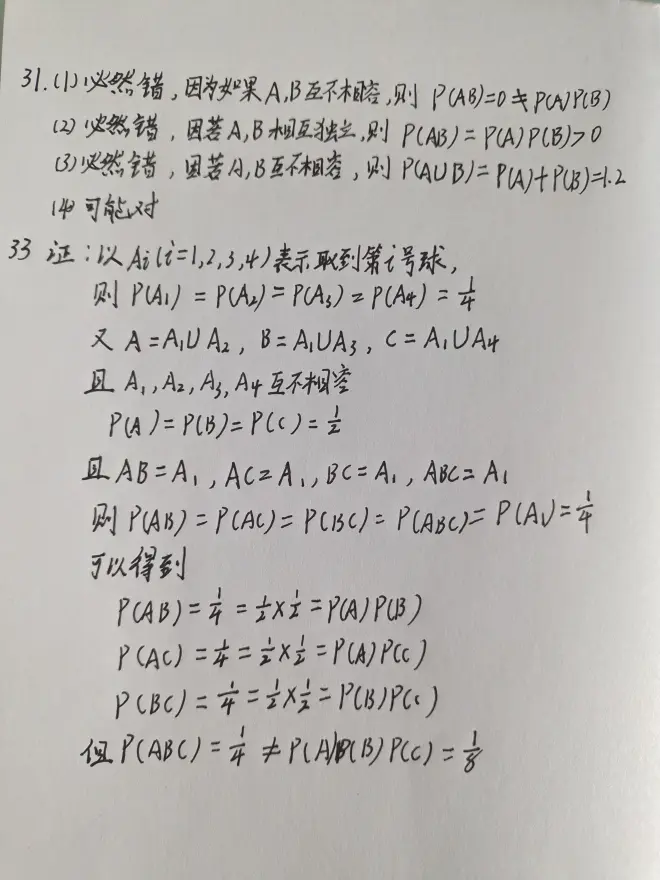 31.(1)必然错,因为如果A,B互不相容,则 P(AB)=0≠P(A)P(B)
(2)必然错,因若A,B相互独立,则 P(AB)=P(A)P(B)>0
(3)必然错,因若A,B互不相容,则 P(A∪B)=P(A)+P(B)=1.2
(4)可能对
33 证:以Ai(i=1,2,3,4)表示取到第i号球,
则 P(A₁)=P(A₂)=P(A₃)=P(A₄)=1/4
又 A=A₁∪A₂, B=A₁∪A₃, C=A₁∪A₄
且 A₁,A₂,A₃,A₄互不相容
P(A)=P(B)=P(C)=1/2
且 AB=A₁,AC=A₁,BC=A₁,ABC=A₁
则 P(AB)=P(AC)=P(BC)=P(ABC)=P(A₁)=1/4
可以得到
P(AB)=1/4=1/2×1/2=P(A)P(B)
P(AC)=1/4=1/2×1/2=P(A)P(C)
P(BC)=1/4=1/2×1/2=P(B)P(C)
但 P(ABC)=1/4≠P(A)P(B)P(C)=1/8